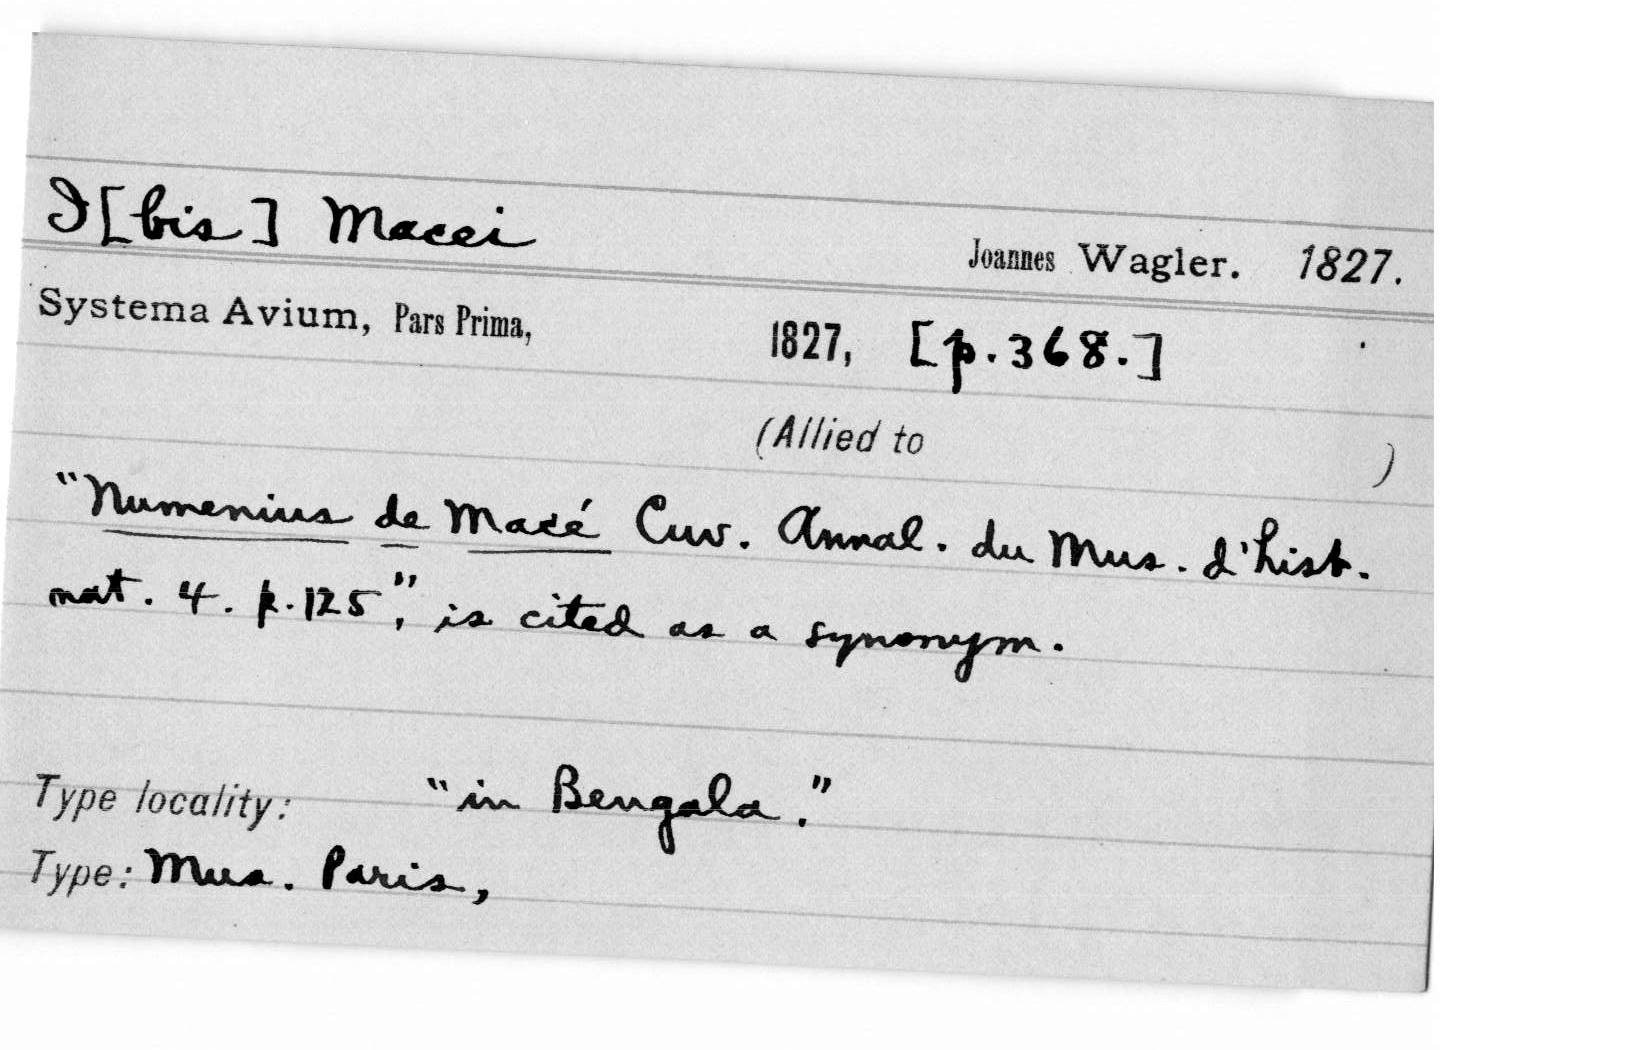 I[bis] Macei
Joannes Wagler. 1827.
Systema Avium, Pars Prima, 1827, [p.368.]
(Allied to )
"Numenius de Macé Cuv. Annal. du Mus. d'hist.
nat. 4. p.125", is cited as a synonym.
Type locality: "in Bengala."
Type: Mus. Paris,